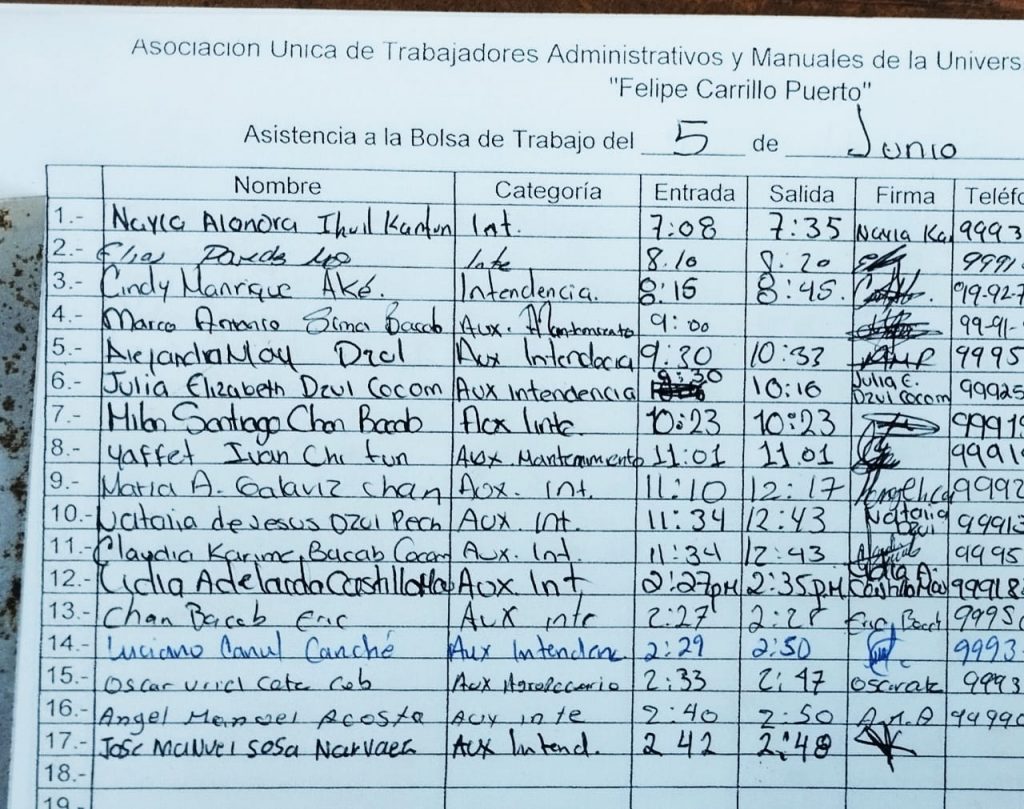 Asociación Unica de Trabajadores Administrativos y Manuales de la Univers
"Felipe Carrillo Puerto"
Asistencia a la Bolsa de Trabajo del 5 de Junio
Nombre Categoría Entrada Salida Firma Teléfo
1.- Nayla Alondra Ihuil Kantun Int. 7:08 7:35 Nayla Ka 9993
2.- Elias Int 8.10 8:20 9991
3.- Cindy Manrique Aké. Intendencia. 8:15 8:45. 99-927
4.- Marco Antonio Sima Bacab Aux. Mantenimiento 9:00 99-91-
5.- Alejandra May Dzul Aux Intendacia 9.30 10:33 9995
6.- Julia Elizabeth Dzul Cocom Aux Intendencia 9:30 10:16 Julia E. Dzul Cocom 99925
7.- Santiago Chan Bacab Aux Inte 10:23 10:23 9991
8.- Yaffet Ivan Chi tun Aux. Mantenimiento 11:01 11.01 9991
9.- Maria A. Galaviz Chan Aox. Int. 11:10 12:17 Angelica 9992
10.- Natalia de Jesus Dzul Pech Aux. Int. 11:34 12:43 Natalia Dzul 99913
11.- Claudia Karime Bacab Cocom Aux. Int. 11:34 12:43 9995
12.- Lidia Adelaida Castillo May Aox Int 2:27pm 2:35p.m. Lidia A. Castillo May 99918
13.- Chan Bacab Eric Aux inte 2:27 2:28 Eric Bacab 9995
14.- Luciano Canul Canché Aux Intendenc 2:29 2:50 9993
15.- Oscar Uriel Aux Agropecuario 2:33 2:47 9993
16.- Angel Manuel Acosta Aux inte 2:40 2:50 A.M.A 99990
17.- Jose Manuel Sosa Narvaez Aux Intend. 2 42 2:48
18.-
19.-